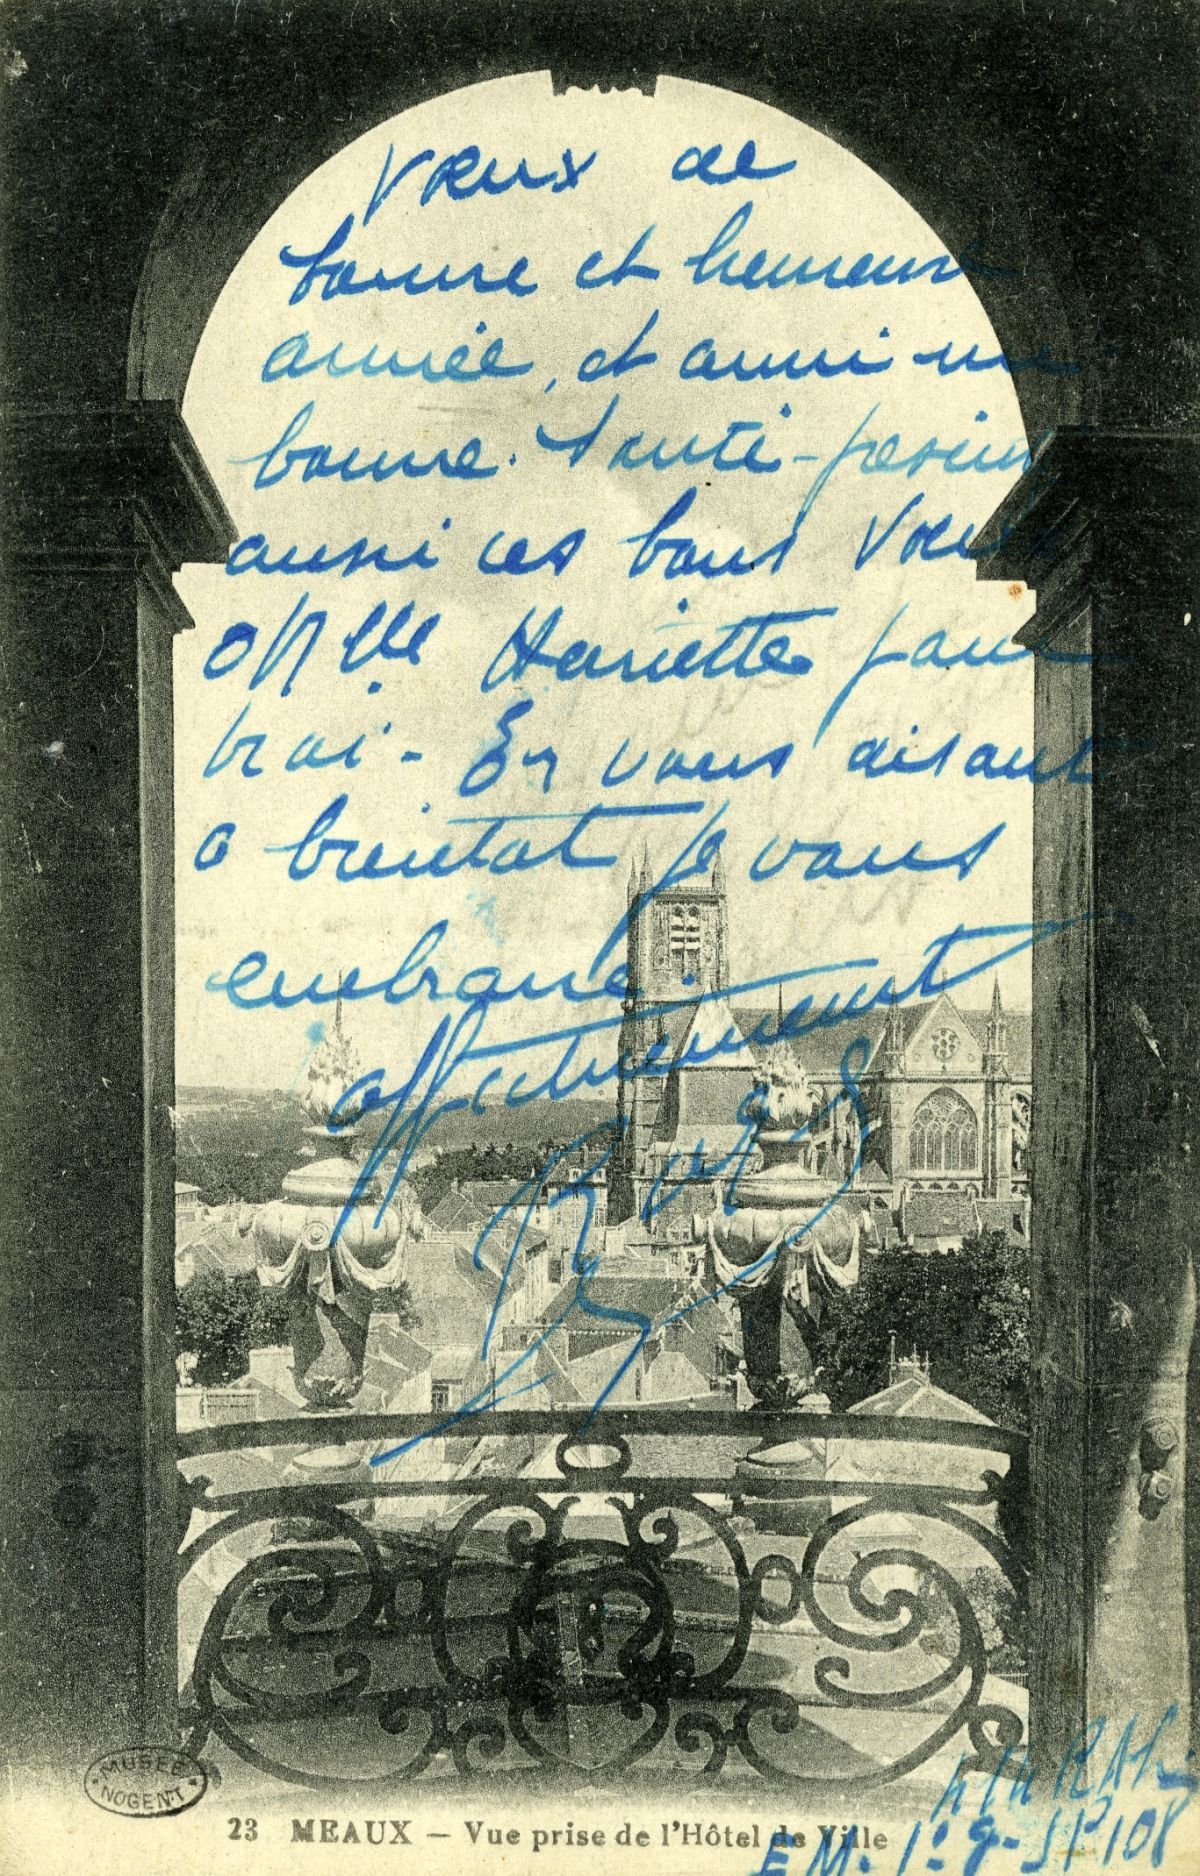 Vœux de
bonne et heureuse
année, et aussi une
bonne Santé -
aussi ces bons Vœux
Henriette pour
En vous disant
a bientot je vous
embrasse.
affectueusement
MUSÉE
NOGENT
23 MEAUX — Vue prise de l'Hôtel de Ville
SP 108